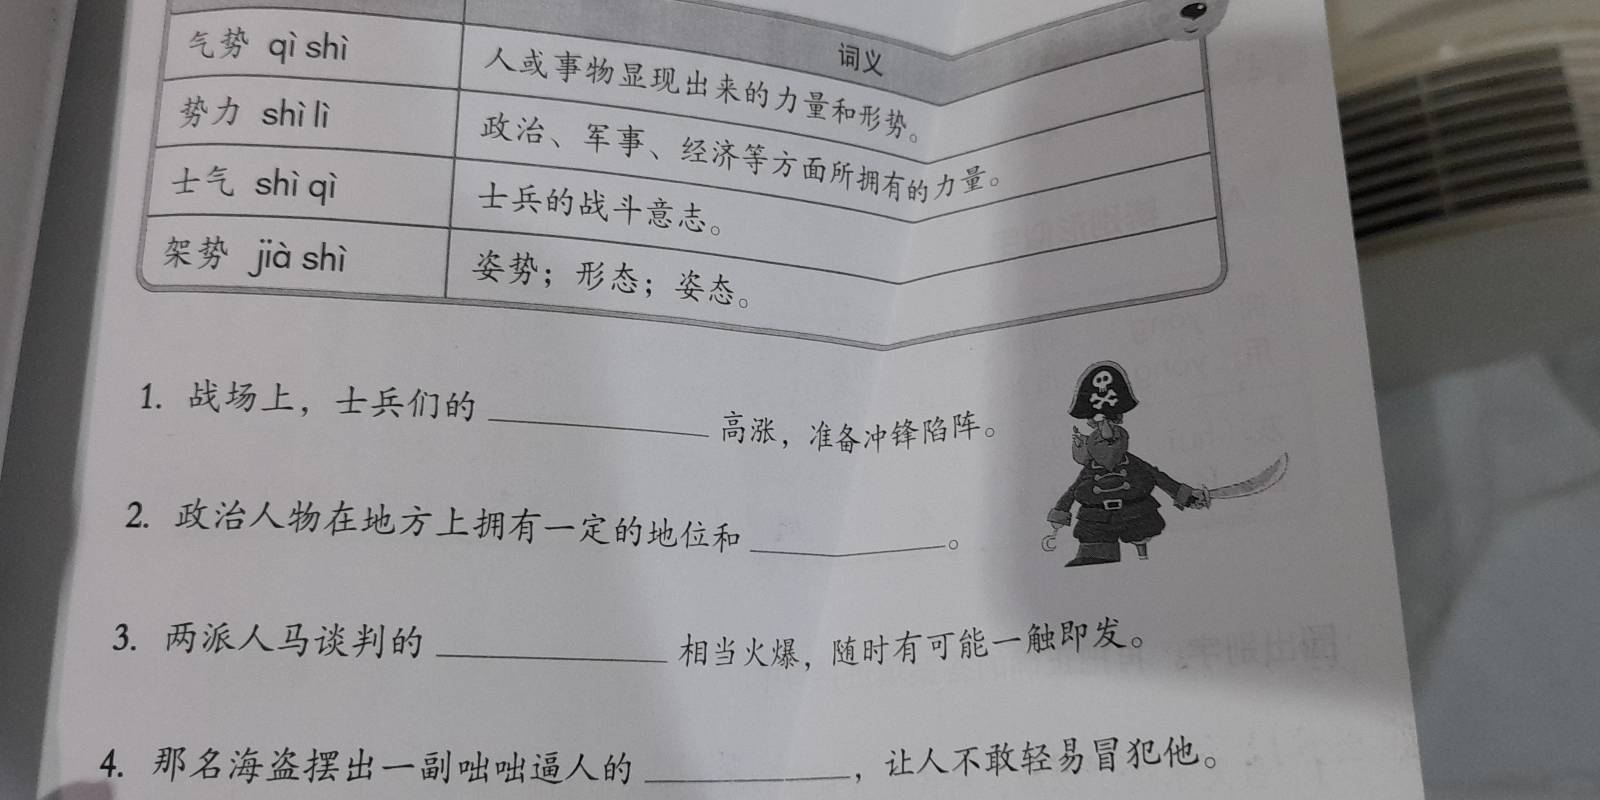 词义
气势 qì shì 人或事物显现出来的力量和形势。
势力 shì lì 政治、军事、经济等方面所拥有的力量。
士气 shì qì 士兵的战斗意志。
架势 jià shì 姿势；形态；姿态。
1. 战场上，士兵们的__________高涨，准备冲锋陷阵。
2. 政治人物在地方上拥有一定的地位和__________。
3. 两派人马谈判的__________相当火爆，随时有可能一触即发。
4. 那名海盗摆出一副咄咄逼人的__________，让人不敢轻易冒犯他。